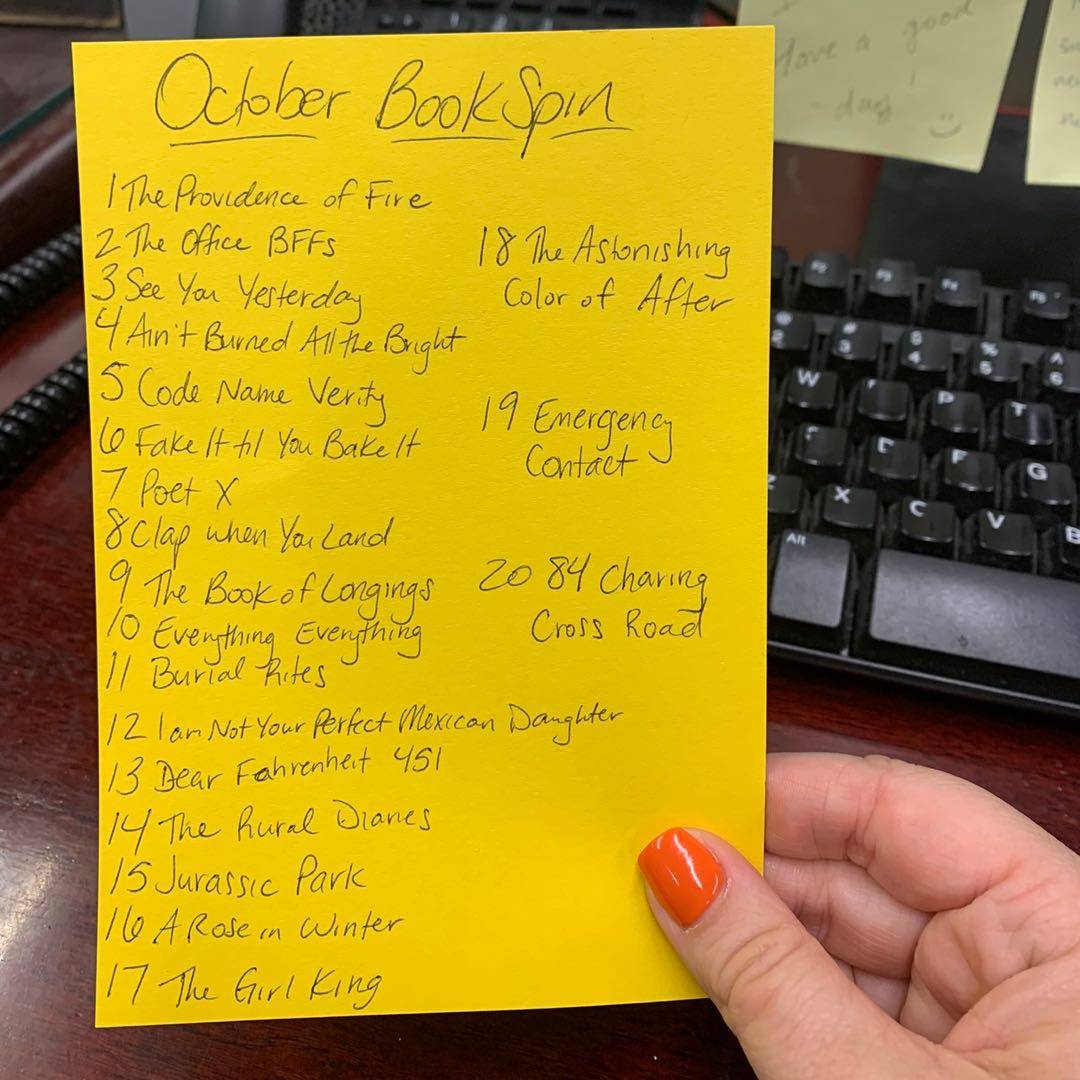 October BookSpin
1 The Providence of Fire
2 The Office BFFs
3 See You Yesterday
4 Ain't Burned All the Bright
5 Code Name Verity
6 Fake It til You Bake It
7 Poet X
8 Clap when You Land
9 The Book of Longings
10 Everything Everything
11 Burial Rites
12 I am Not Your Perfect Mexican Daughter
13 Dear Fahrenheit 451
14 The Rural Diaries
15 Jurassic Park
16 A Rose in Winter
17 The Girl King
18 The Astonishing
Color of After
19 Emergency
Contact
20 84 Charing
Cross Road
Have a good
day
F2
F3
F4
F5
@ 2
# 3
$ 4
% 5
^ 6
W
T
F
G
X
C
V
B
Alt